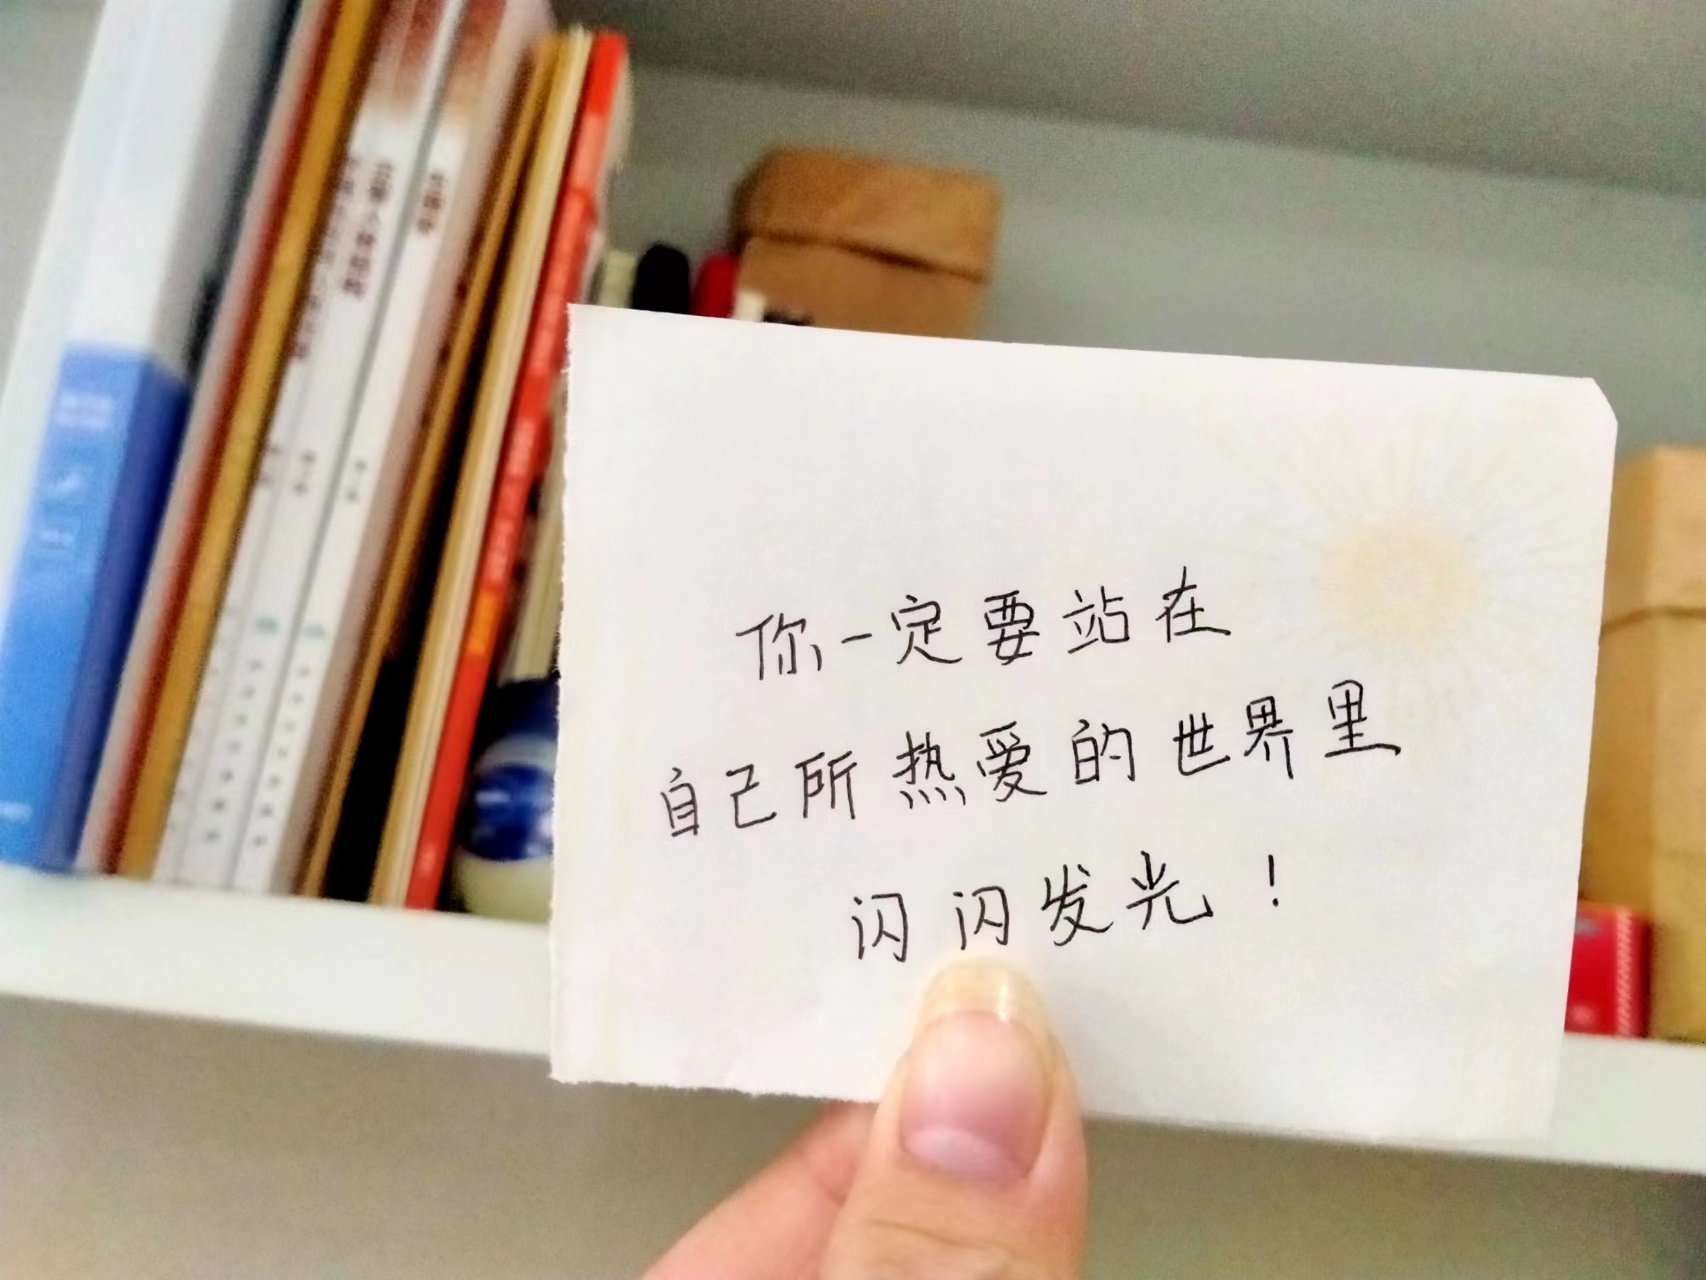 你一定要站在
自己所热爱的世界里
闪闪发光！